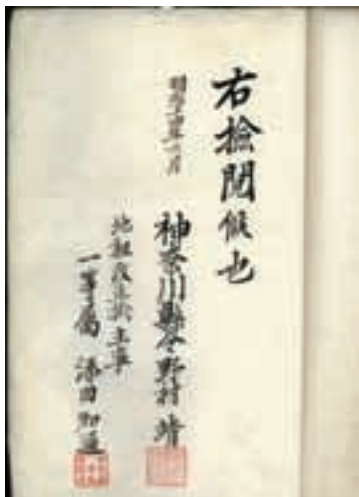 右検閲候也
明治十四年一月
神奈川縣令野村靖
地租改正掛主事
一等属添田知通